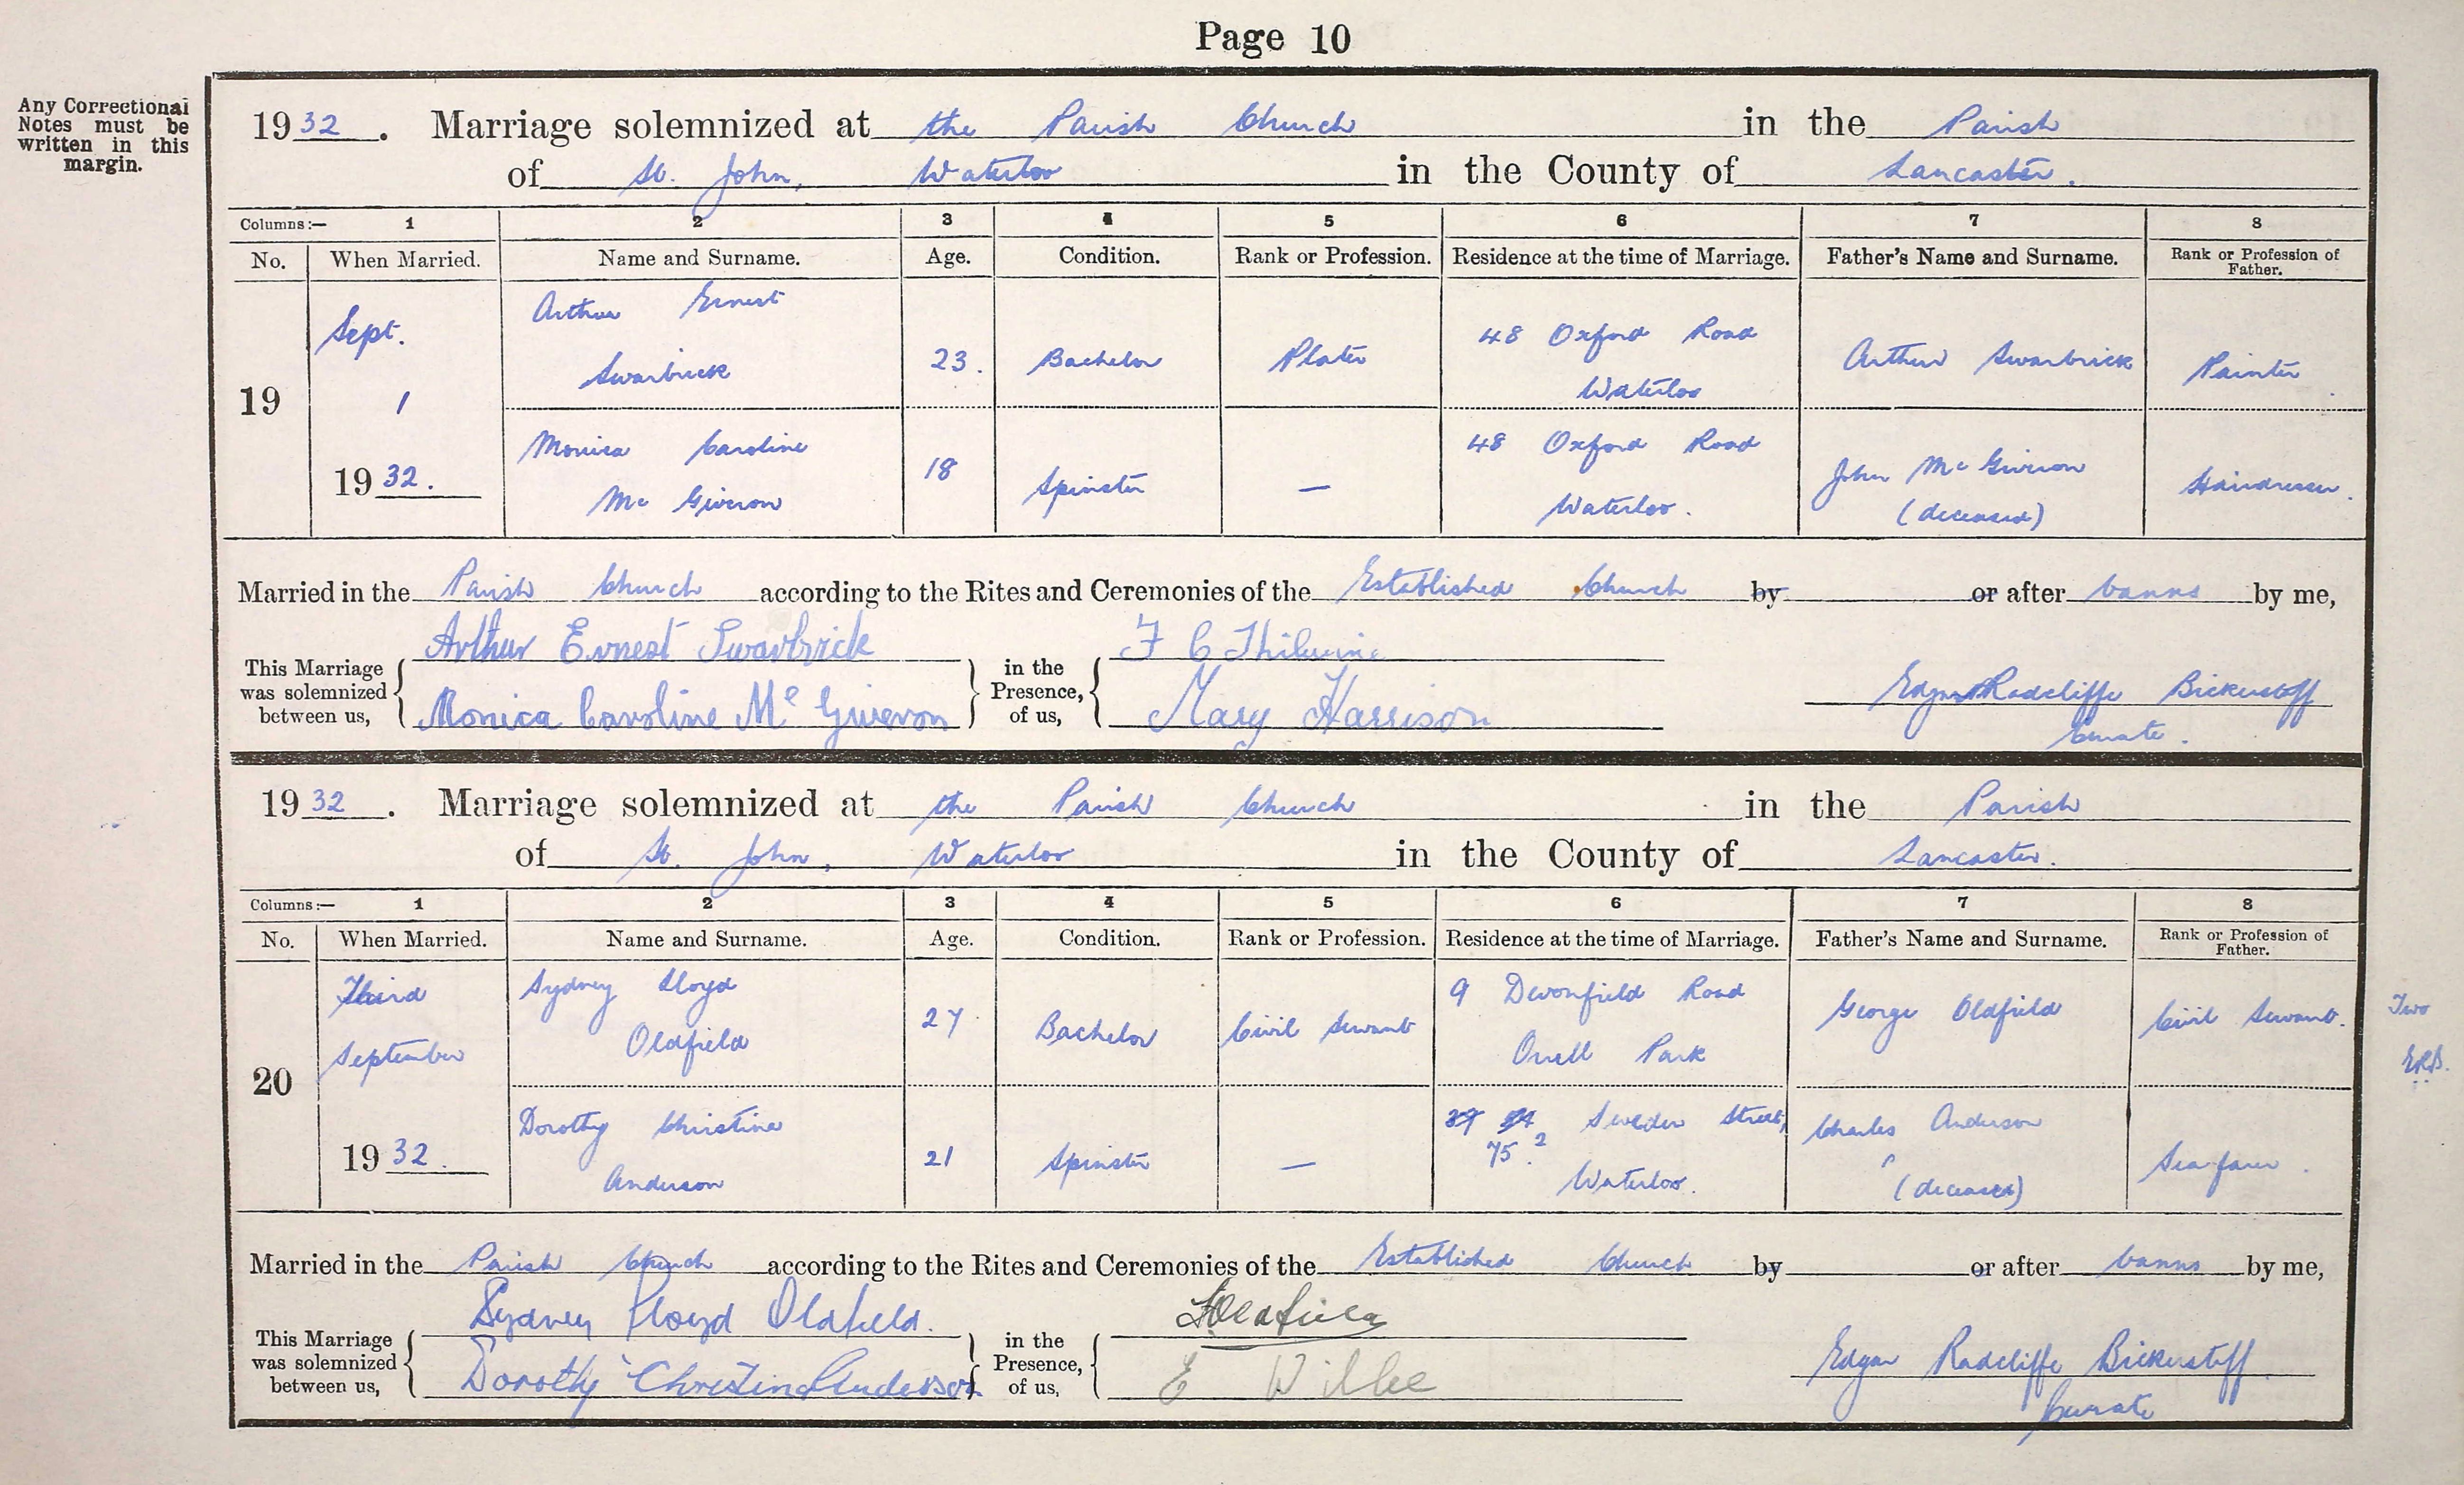 Page 10
Any Correctional
Notes must be
written in this
margin.
1932. Marriage solemnized at the Parish Church in the Parish
of St. John, Waterloo in the County of Lancaster.
Columns:— 1 2 3 4 5 6 7 8
No. When Married. Name and Surname. Age. Condition. Rank or Profession. Residence at the time of Marriage. Father's Name and Surname. Rank or Profession of Father.
19 Sept. 1 1932.
Arthur Ernest Swarbrick 23. Bachelor Plater 48 Oxford Road Waterloo Arthur Swarbrick Painter
Monica Caroline Mc Giveron 18 Spinster — 48 Oxford Road Waterloo. John Mc Giveron (deceased) Hairdresser.
Married in the Parish Church according to the Rites and Ceremonies of the Established Church by or after banns by me,
This Marriage was solemnized between us, Arthur Ernest Swarbrick
Monica Caroline Mc Giveron
in the Presence, of us, F C
Mary Harrison
Edgar Radcliffe Bickerstaff
Curate.
1932. Marriage solemnized at the Parish Church in the Parish
of St. John, Waterloo in the County of Lancaster.
Columns:— 1 2 3 4 5 6 7 8
No. When Married. Name and Surname. Age. Condition. Rank or Profession. Residence at the time of Marriage. Father's Name and Surname. Rank or Profession of Father.
20 Third September 1932.
Sydney Lloyd Oldfield 27 Bachelor Civil Servant 9 Devonfield Road Orrell Park George Oldfield Civil Servant.
Two
E.R.B.
Dorothy Christina Anderson 21 Spinster — 75.2 Street, Waterloo. Charles Anderson (deceased) Sea-farer.
Married in the Parish Church according to the Rites and Ceremonies of the Established Church by or after banns by me,
This Marriage was solemnized between us, Sydney Lloyd Oldfield.
Dorothy Christina Anderson
in the Presence, of us,
E
Edgar Radcliffe Bickerstaff.
Curate